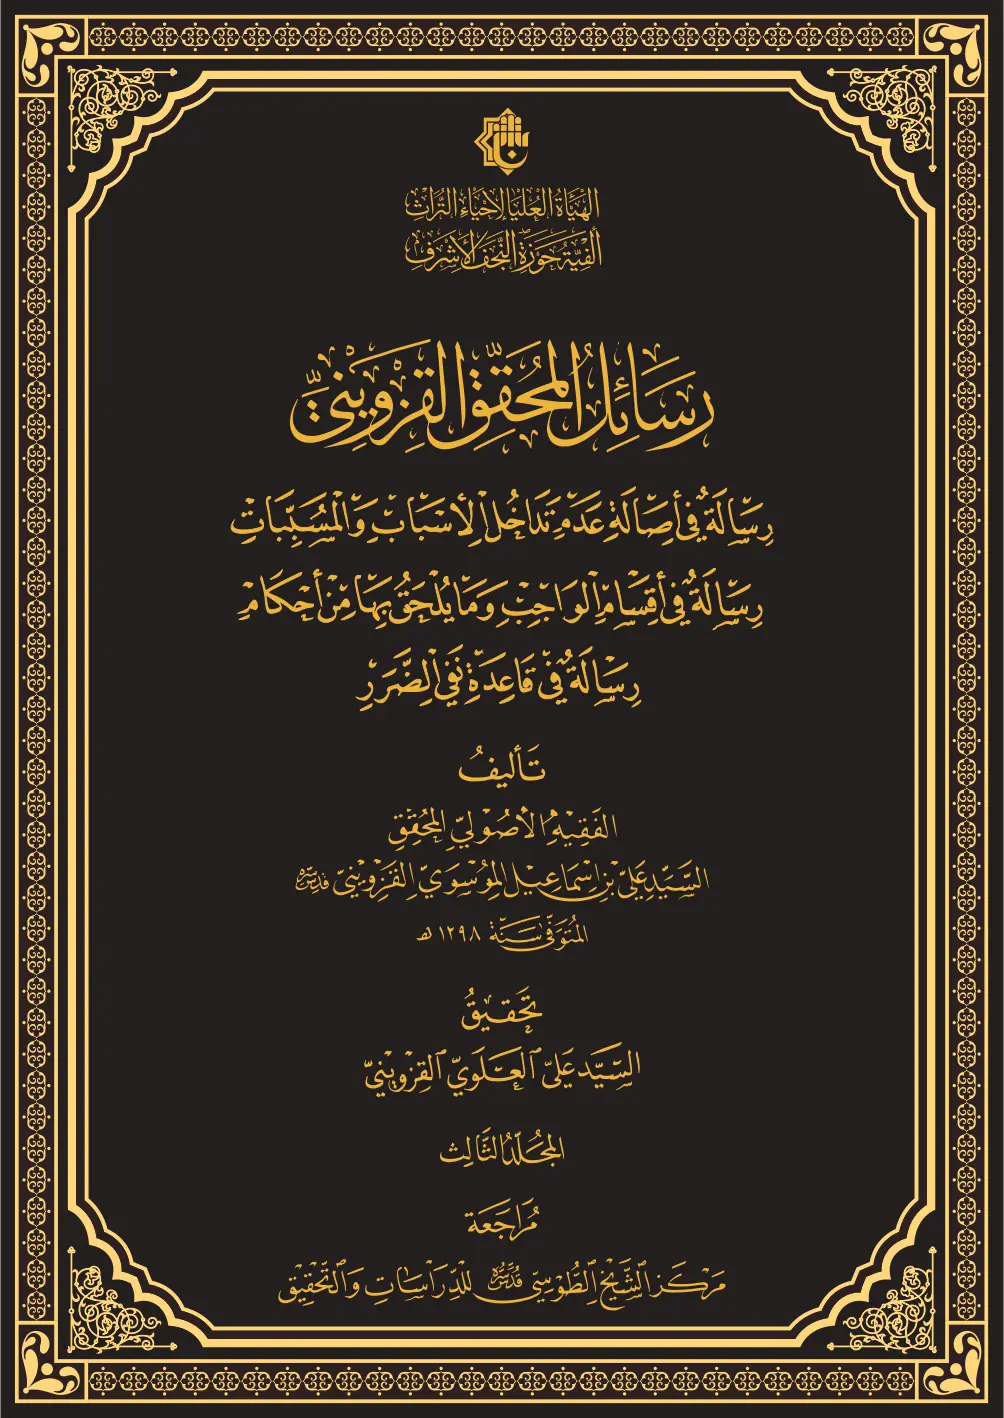 الهَيْأَةُ العُلْيَا لِإِحْيَاءِ التُّرَاثِ
أَلْفِيَّةُ حَوْزَةِ النَّجَفِ الأَشْرَفِ
رَسَائِلُ المُحَقِّقِ القَزْوِينِيِّ
رِسَالَةٌ فِي أَصَالَةِ عَدَمِ تَدَاخُلِ الأَسْبَابِ وَالمُسَبَّبَاتِ
رِسَالَةٌ فِي أَقْسَامِ الوَاجِبِ وَمَا يُلْحَقُ بِهَا مِنْ أَحْكَامٍ
رِسَالَةٌ فِي قَاعِدَةِ نَفْيِ الضَّرَرِ
تَأْلِيفُ
الفَقِيهِ الأُصُولِيِّ المُحَقِّقِ
السَّيِّدِ عَلِيِّ بْنِ إِسْمَاعِيلَ المُوسَوِيِّ القَزْوِينِيِّ قدس سره
المُتَوَفَّى سَنَةَ ١٢٩٨ هـ
تَحْقِيقُ
السَّيِّد عَلِيّ العَلَوِيّ القَزْوِينِيّ
المُجَلَّدُ الثَّالِث
مُرَاجَعَة
مَرْكَز الشَّيْخِ الطُّوسِيّ قدس سره لِلدِّرَاسَاتِ وَالتَّحْقِيقِ